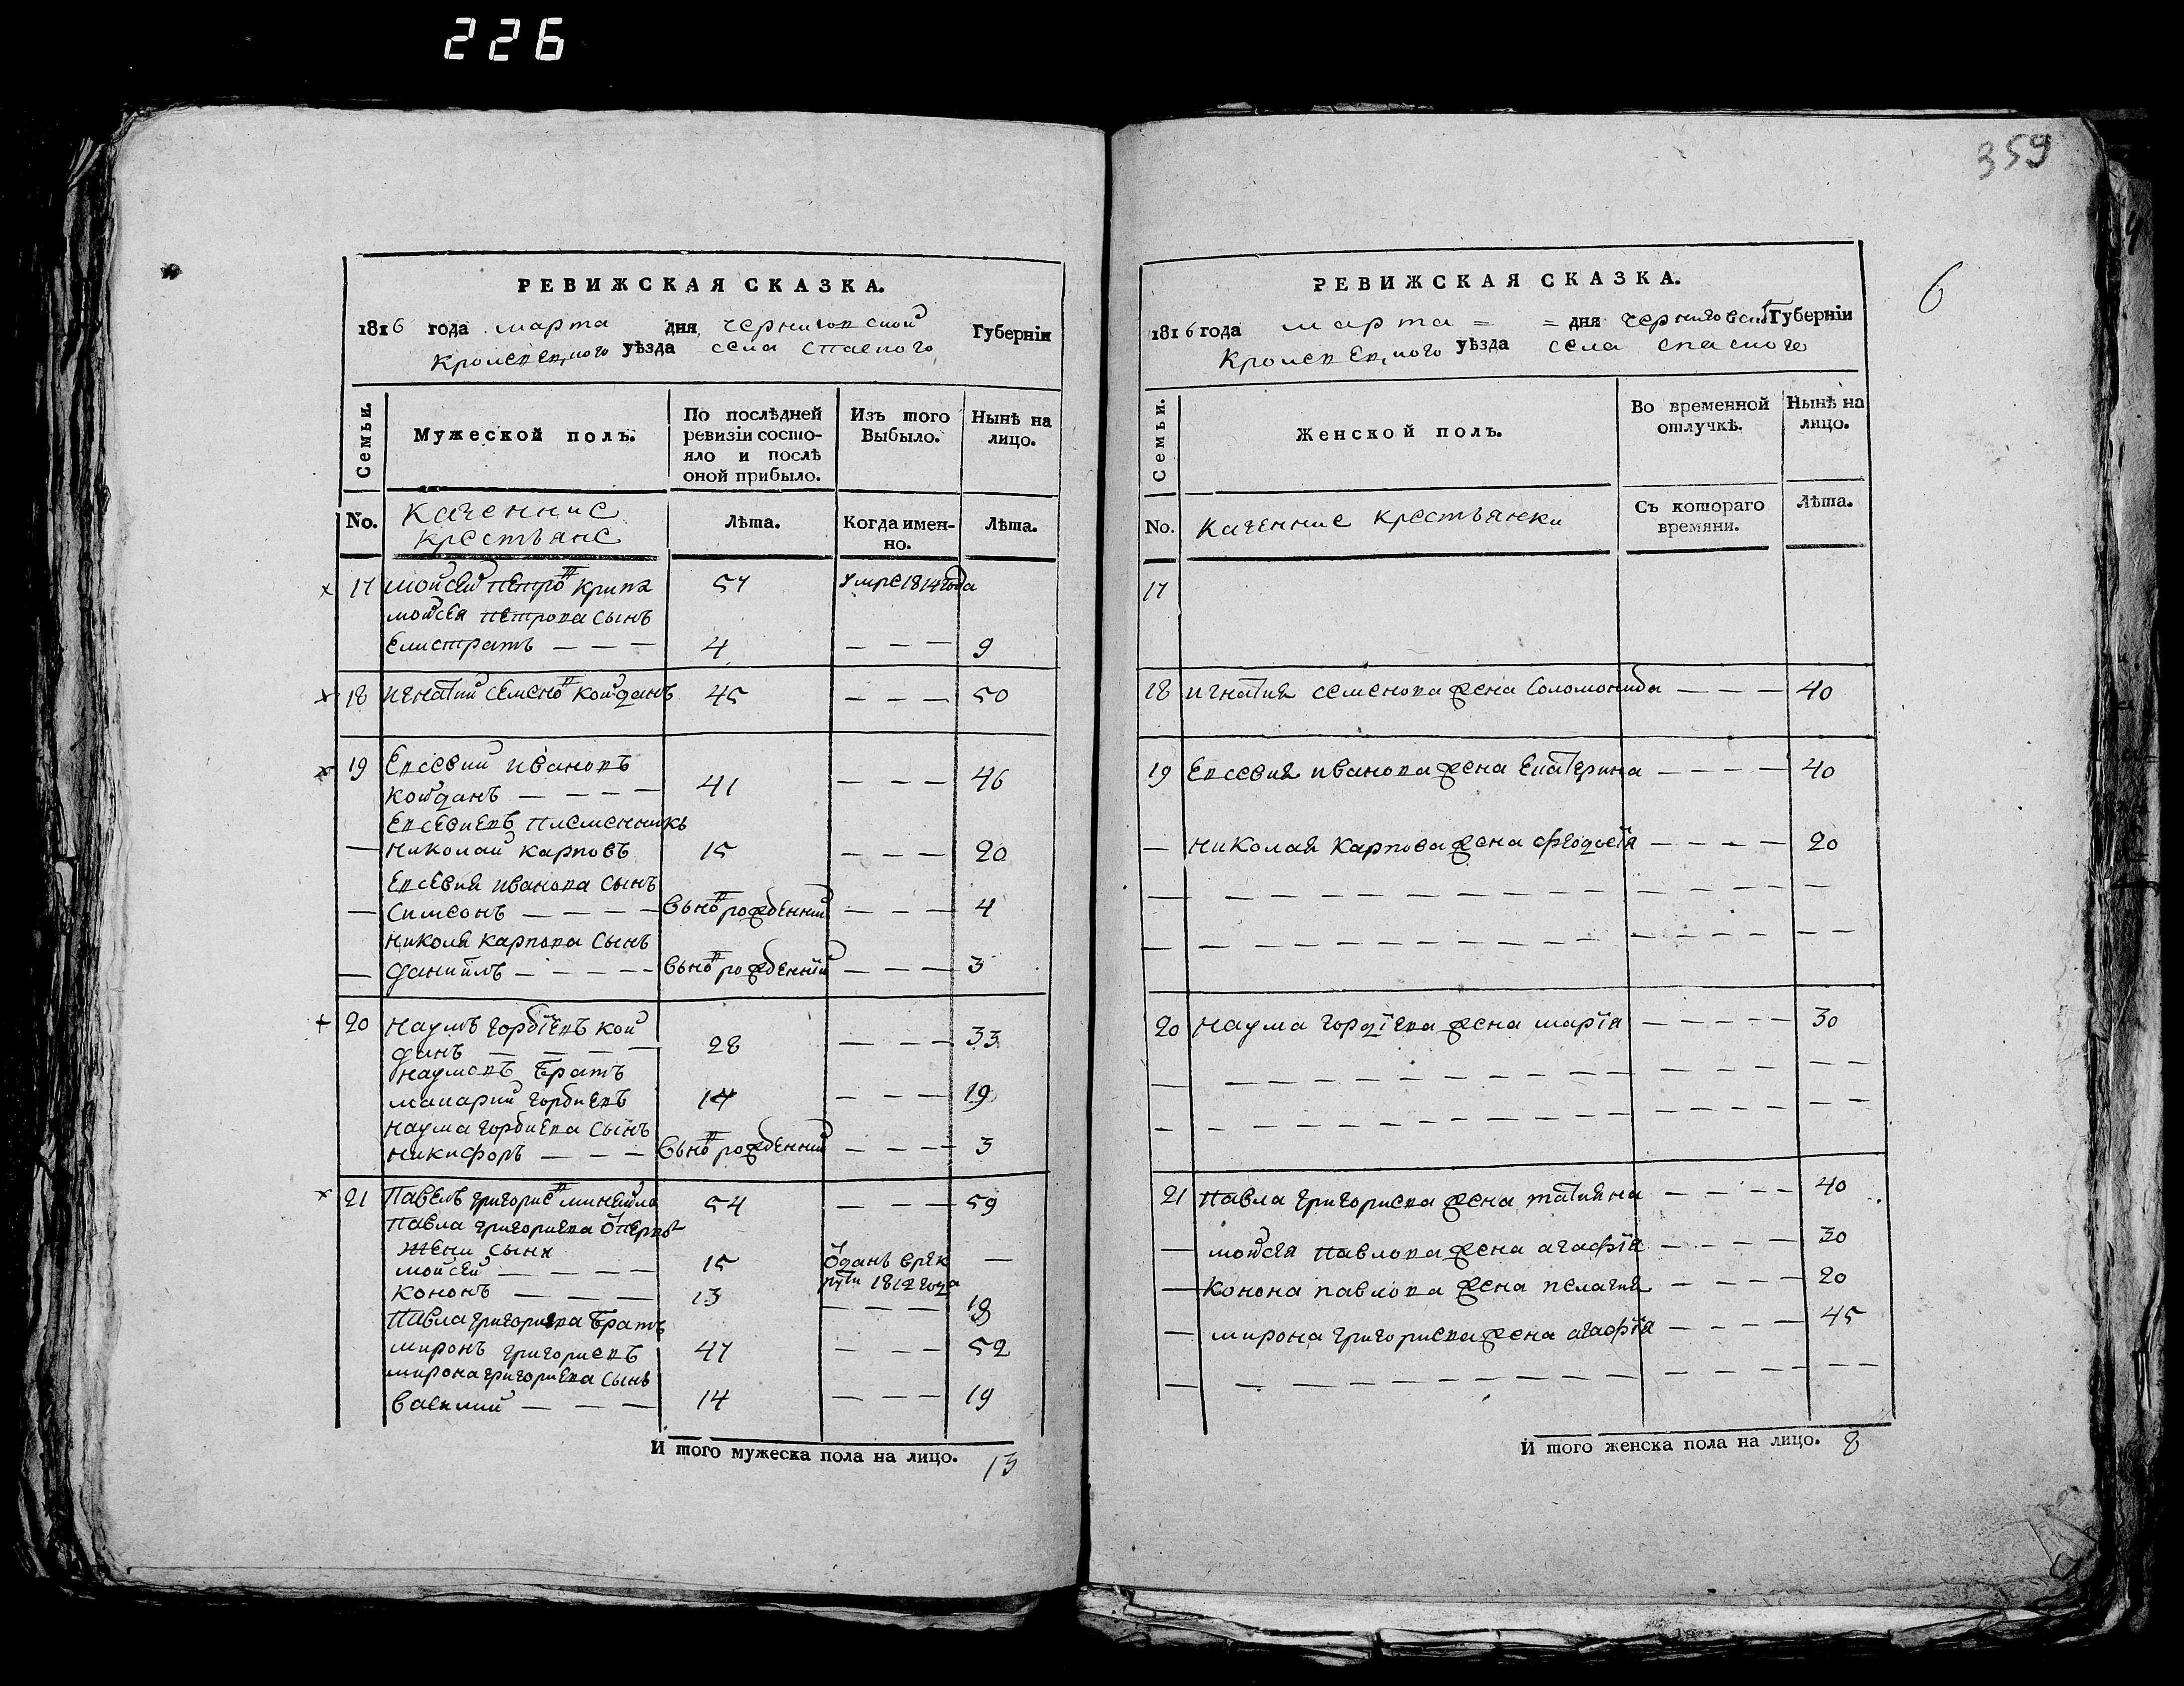 226
359
6
РЕВИЖСКАЯ СКАЗКА.
1816 года марта дня черниговской Губернiи
Кролевецкого уѣзда села спаского
Семьи.
Мужеской полъ.
По послѣдней ревизiи состо-
яло и послѣ
оной прибыло.
Изъ того
Выбыло.
Нынѣ на
лицо.
No.
Казенние
крестьяне
Лѣта.
Когда имен-
но.
Лѣта.
17 мойсей петров 57 умре 1814 года
мойсея петрова сынъ
Елистратъ — — — 4 — — — 9
18 игнатий семенов койданъ 45 — — — 50
19 Евсевий ивановъ
койданъ — — — — 41 — — — 46
Евсевиевъ племенникъ
— николай карповъ 15 — — — 20
Евсевия иванова сынъ
— симеонъ — — — — вьнов рожденний — — — 4
николя карпова сынъ
— даниилъ — — — — — вьнов рожденний — — — 3
20 наумъ гордiевъ кой
данъ — — — — 28 — — — 33
наумовъ братъ
макарий гордиевъ 14 — — — 19
наума гордиева сынъ
никифоръ — — — вьнов рожденний — — — 3
21 Павелъ григориев 54 — — — 59
Павла григориева
жени сыни
мойсей — — — — 15 оданъ врек —
рути 1812 года
кононъ — — — — 13 — — — 18
Павла григориева братъ
миронъ григориевъ 47 — — — 52
мирона григориева сынъ
василий — — — 14 — — — 19
И того мужеска пола на лицо. 13
РЕВИЖСКАЯ СКАЗКА.
1816 года марта = = дня черниговской Губернiи
Кролевецкого уѣзда села спаского
Семьи.
Женской полъ.
Во временной
отлучкѣ.
Нынѣ на
лицо.
No.
казенние крестьянки
Съ котораго
времяни.
Лѣта.
17
18 игнатия семенова жена соломонида — — — 40
19 Евсевия иванова жена Екатерина — — — — 40
— николая карпова жена феодосiя — — — — 20
20 наума гордiева жена марiя — — — — — 30
21 павла григориева жена татияна — — — — 40
— мойсея павлова жена агафiя — — — — 30
— конона павлова жена пелагия — — — — 20
— мирона григориева жена агафiя — — — — 45
И того женска пола на лицо. 8